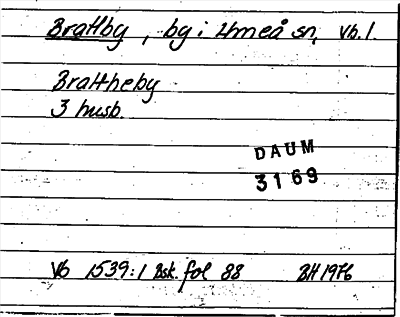 Brattby, by i Umeå sn, Vb.l.
Brattheby
3 husb.
DAUM
3169
Vb 1539:1 Bsk. fol 88 BH 1976